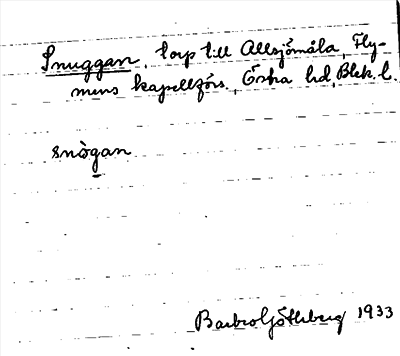 Snuggan, torp till Allsjömåla, Fly-
mens kapellförs., Östra hd, Blek. l.
snògan
Barbro Götlberg 1933